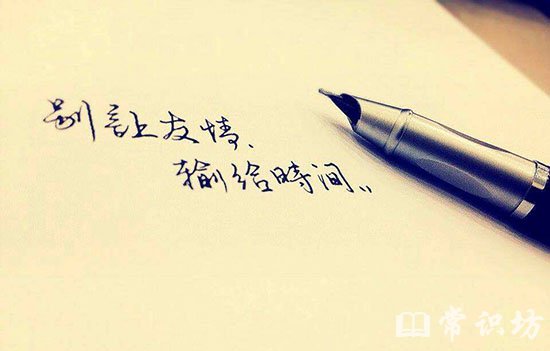 别讓友情、
输给時间、、
常识坊